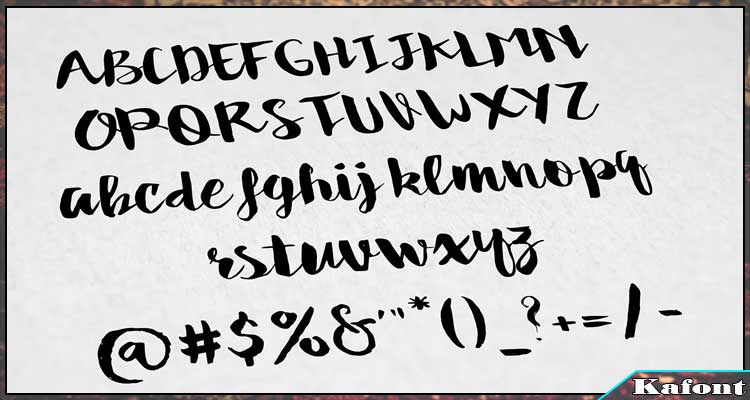 ABCDEFGHIJKLMN
OPQRSTUVWXYZ
abcdefghijklmnopq
rstuvwxyz
@#$%&'"*()_?+=/-
Kafont